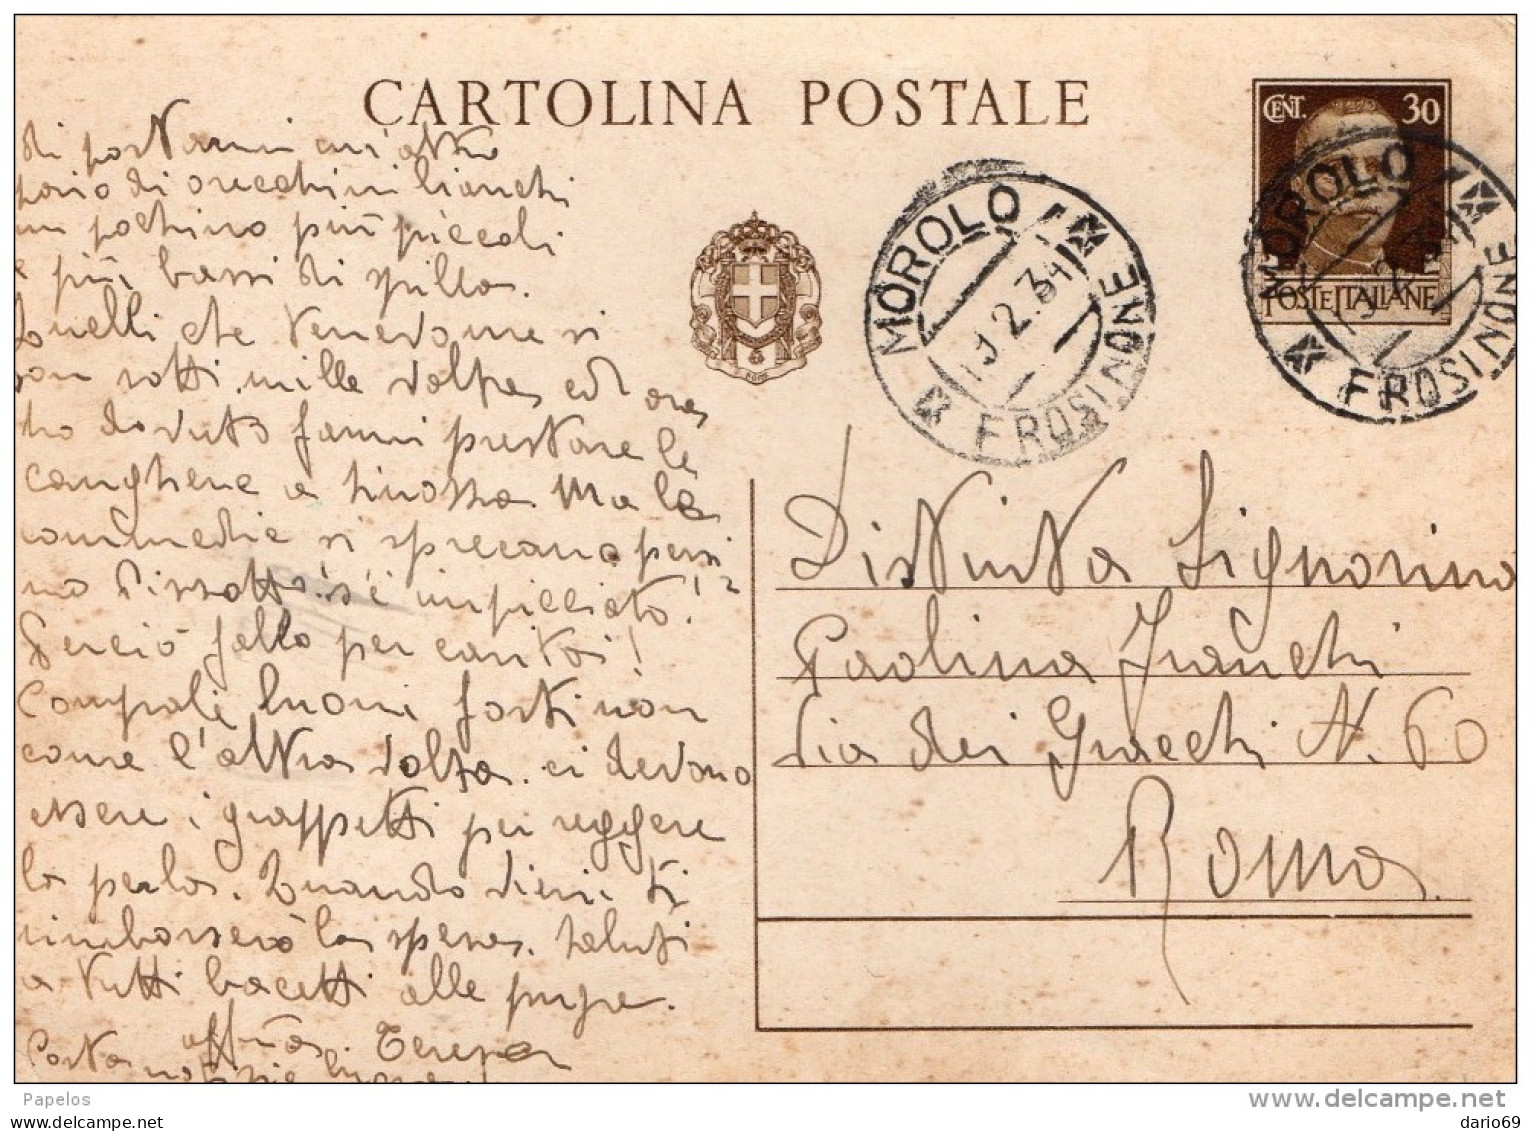 CARTOLINA POSTALE
CENT. 30
POSTE ITALIANE
MOROLO
19.2.34
FROSINONE
MOROLO
FROSINONE
di portarmi un'altro
paio di orecchini bianchi
un pochino più piccoli
e più bassi di spilla.
Quelli che
son rotti mille volte, ed ora
ho dovuto farmi prestare le
a Ma le
commedie si sprecano persi
no s'è impicciato!
Perciò fallo per carità!
Comprali buoni forti non
come l'altra volta. ci devono
essere i grappetti per reggere
la perla. Quando vieni ti
rimborserò la spesa. Saluti
a tutti bacetti alle pupe.
aff.ma Teresa
Porta notizie
Distinta Signorina
Paolina Franchi
Via dei Gracchi N. 60
Roma
Papelos
www.delcampe.net
dario69